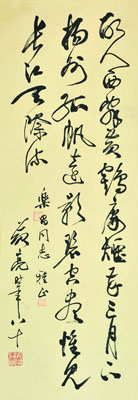 故人西辭黃鶴樓煙花三月下
揚州孤帆遠影碧空盡惟見
長江天際流
樂 同志雅正
八十